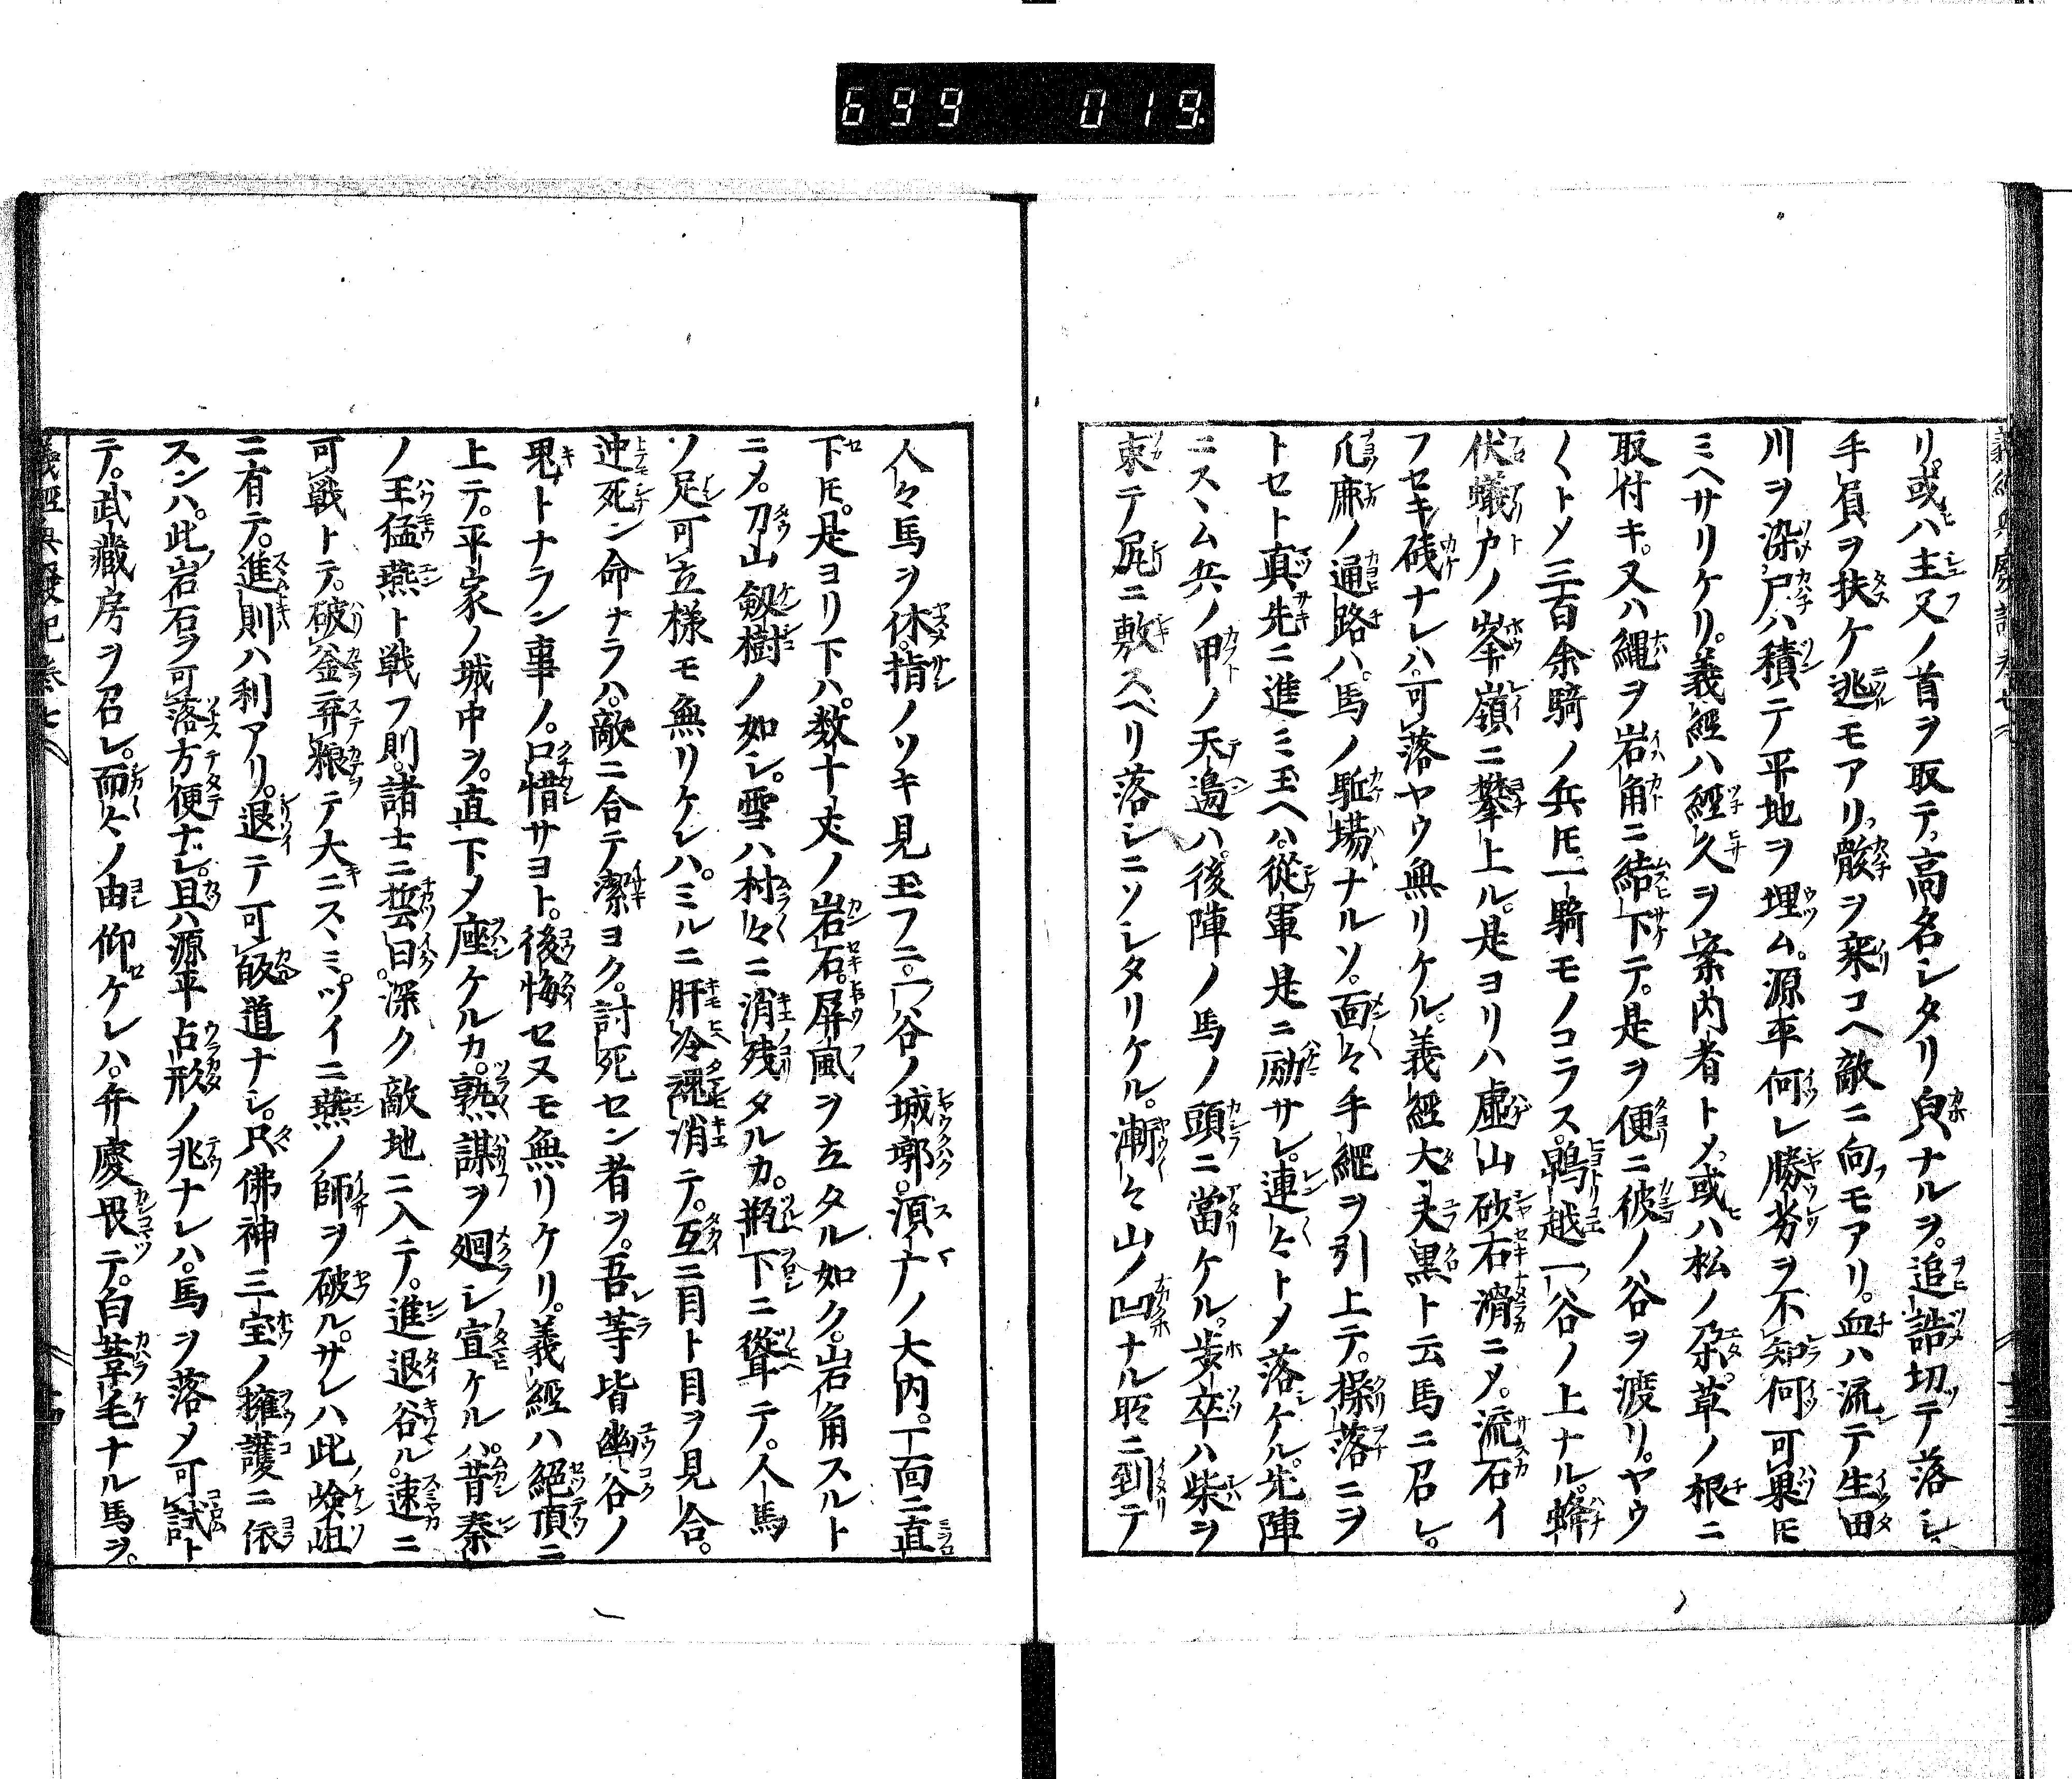 699 019
リ。或ハ主又ノ首ヲ取テ高名シタリ皃ナルヲ。追詰切テ落シ。
手負ヲ扶ケ逃モアリ。骸ヲ乗コヘ敵ニ向モアリ。血ハ流テ生田
川ヲ染。尸ハ積テ平地ヲ埋ム。源平何レ勝劣ヲ不知。何可果𪜈
ミヘサリケリ。義經ハ經久ヲ案内者トメ。或ハ松ノ朶。草ノ根ニ
取付キ。又ハ縄ヲ岩角ニ結下テ。是ヲ便ニ彼ノ谷ヲ渡リ。ヤウ
〱トメ三百余騎ノ兵𪜈。一騎モノコラス。鵯越一谷ノ上ナル。蜂
伏蟻戸ノ峯嶺ニ攀上ル。是ヨリハ虚山砂石滑ニメ。流石イ
フセキ磯ナレハ。可落ヤウ無リケル。義經大夫黒ト云馬ニ召レ。
凡麻ノ通路ハ。馬ノ駈場ナルソ。面々手綱ヲ引上テ。操落ニヲ
トセト真先ニ進ミ玉ヘハ。從軍是ニ励サレ。連々トメ落ケル。先陣
ニスヽム兵ノ甲ノ天邉ハ。後陣ノ馬ノ頭ニ當ケル。歩卒ハ柴ヲ
束テ尻ニ敷スベリ落シニソシタリケル。漸々山ノ凹ナル所ニ到テ
人々馬ヲ休。指ノソキ見玉フニ。一谷ノ城墎。湏ナノ大内。下面ニ直
下𪜈。是ヨリ下ハ。数十丈ノ岩石。屏風ヲ立タル如ク。岩角スルト
ニメ。刀山釼樹ノ如シ。雪ハ村々ニ消残タルカ。瓶下ニ聳テ。人馬
ソ足可立様モ無リケレハ。ミルニ肝冷魂消テ。互ニ目ト目ヲ見合。
迚死ン命ナラハ。敵ニ合テ潔ヨク。討死セン者ヲ。吾等皆幽谷ノ
鬼トナラン事ノ。口惜サヨト。後悔セヌモ無リケリ。義經ハ絕頂ニ
上テ。平家ノ城中ヲ。直下メ座ケルカ。熟謀ヲ廻シ宣ケルハ。昔秦
ノ王猛燕ト戦フ則。諸士ニ誓曰。深ク敵地ニ入テ。進退谷ル。速ニ
可戦トテ。破釜弃粮テ大ニスヽミ。ツイニ燕ノ師ヲ破ル。サレハ此嶮岨
ニ有テ。進則ハ利アリ。退テ可皈道ナシ。只佛神三宝ノ擁護ニ依
スンハ。此岩石ヲ可落方便ナシ。且ハ源平占形ノ兆ナレハ。馬ヲ落メ可試ト
テ。武藏房ヲ召レ。而々ノ由仰ケレハ。弁慶畏テ。白葦毛ナル馬ヲ。